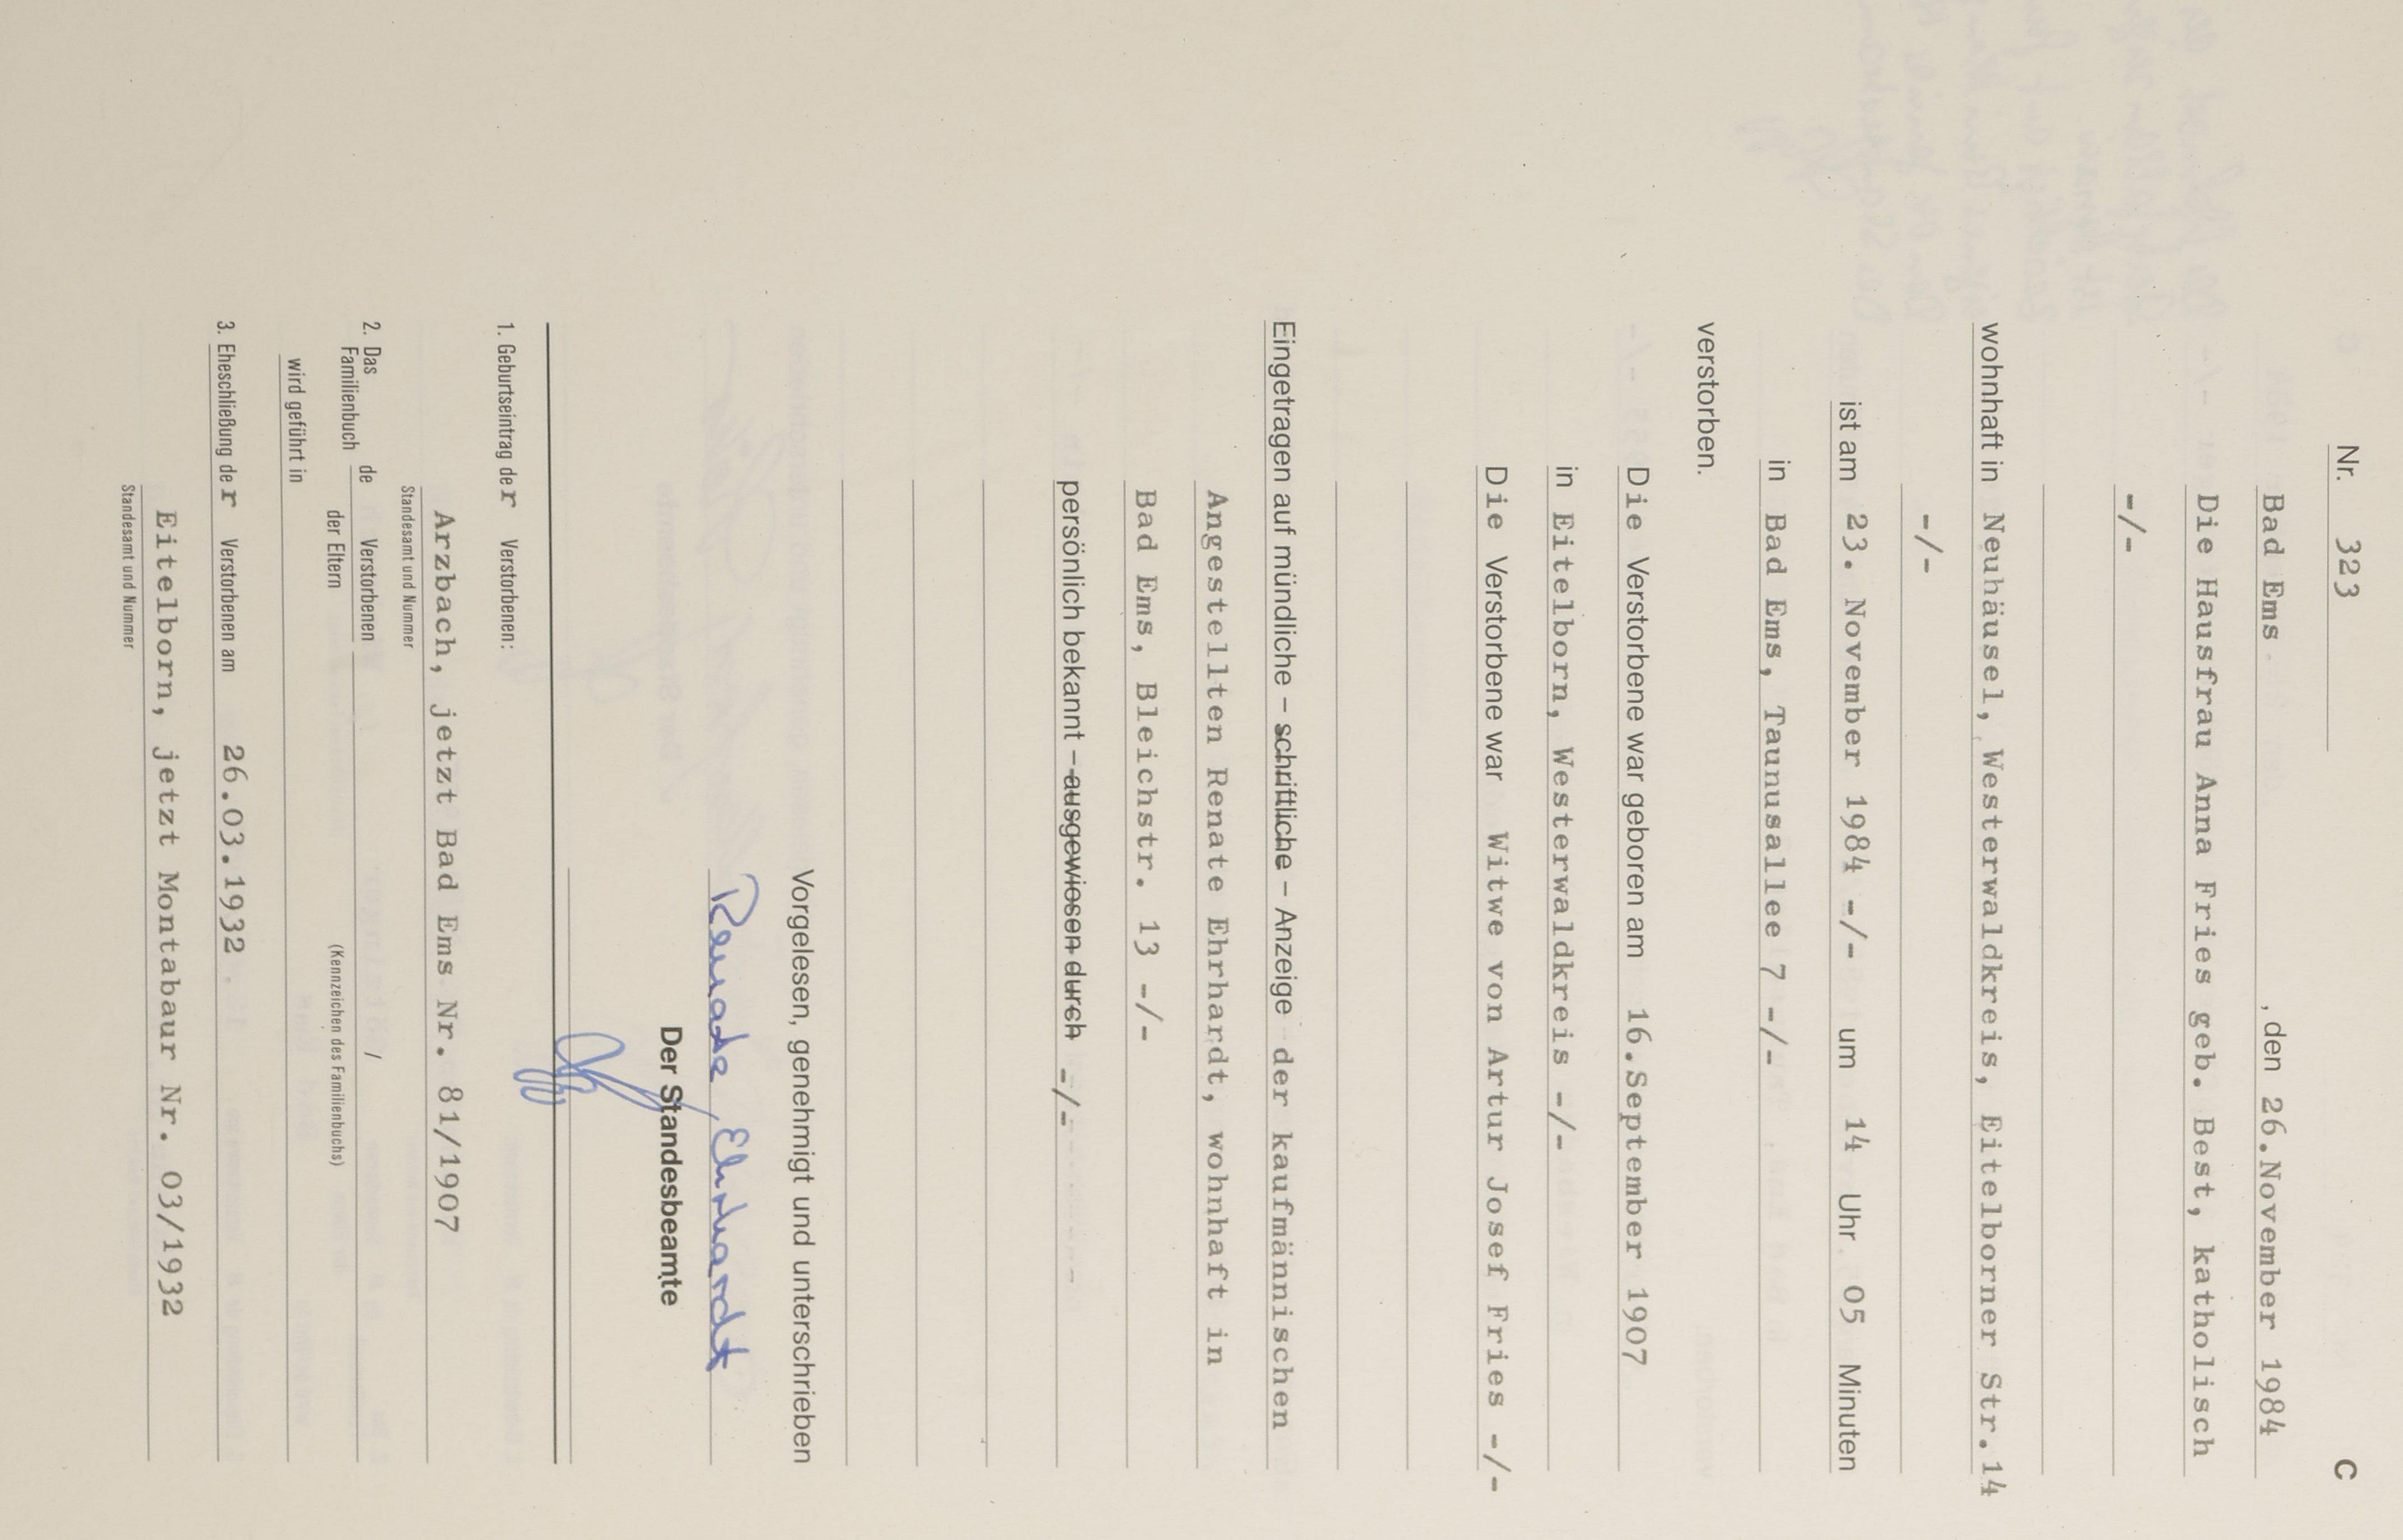 C
Nr. 323
Bad Ems , den 26.November 1984
Die Hausfrau Anna Fries geb. Best, katholisch
-/-
wohnhaft in Neuhäusel, Westerwaldkreis, Eitelborner Str.14
-/-
ist am 23. November 1984 -/- um 14 Uhr 05 Minuten
in Bad Ems, Taunusallee 7 -/-
verstorben.
Die Verstorbene war geboren am 16.September 1907
in Eitelborn, Westerwaldkreis -/-
Die Verstorbene war Witwe von Artur Josef Fries -/-
Eingetragen auf mündliche – schriftliche – Anzeige der kaufmännischen
Angestellten Renate Ehrhardt, wohnhaft in
Bad Ems, Bleichstr. 13 -/-
persönlich bekannt – ausgewiesen durch -/-
Vorgelesen, genehmigt und unterschrieben
Renate Ehrhardt
Der Standesbeamte
1. Geburtseintrag der Verstorbenen:
Arzbach, jetzt Bad Ems Nr. 81/1907
Standesamt und Nummer
2. Das Familienbuch de Verstorbenen /
der Eltern (Kennzeichen des Familienbuchs)
wird geführt in
3. Eheschließung der Verstorbenen am 26.03.1932
Eitelborn, jetzt Montabaur Nr. 03/1932
Standesamt und Nummer